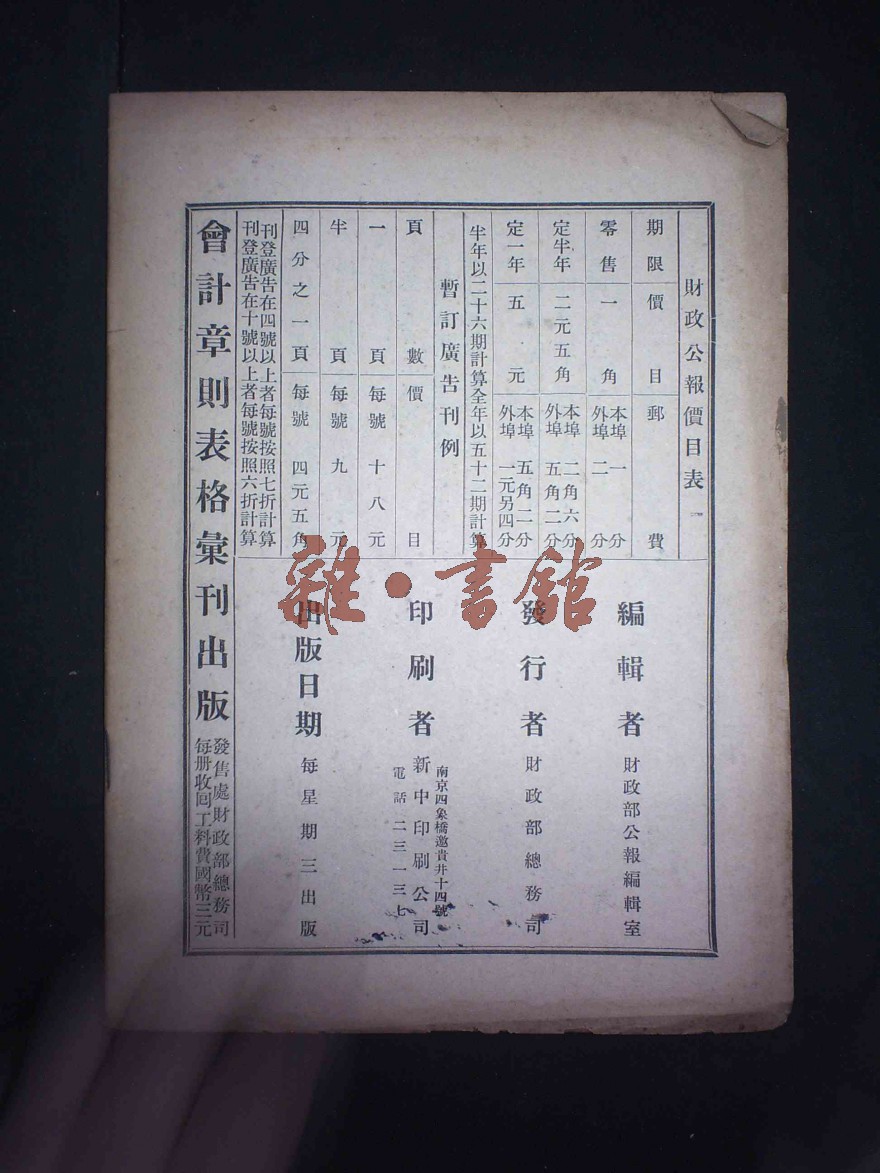 財政公報價目表
期限 價目 郵費
零售 一角 本埠一分 外埠二分
定半年 二元五角 本埠二角六分 外埠五角二分
定一年 五元 本埠五角二分 外埠一元另四分
半年以二十六期計算全年以五十二期計算
暫訂廣告刊例
頁數 價目
一頁 每號十八元
半頁 每號九元
四分之一頁 每號四元五角
刊登廣告在四號以上者每號按照七折計算
刊登廣告在十號以上者每號按照六折計算
編輯者 財政部公報編輯室
發行者 財政部總務司
南京四象橋邀貴井十四號
印刷者 新中印刷公司
電話 二三一三七
出版日期 每星期三出版
會計章則表格彙刊出版
發售處財政部總務司
每册收回工料費國幣三元
雜·書館